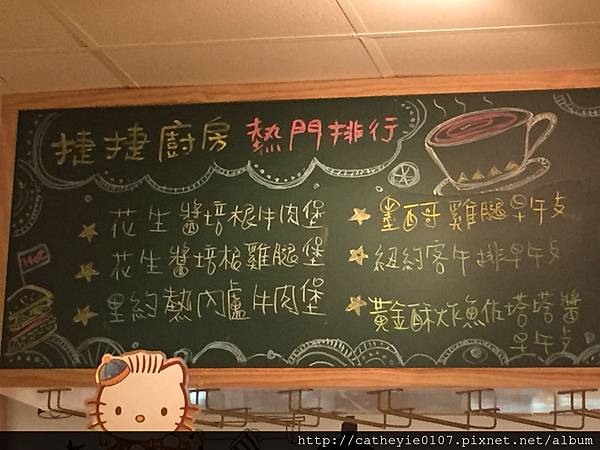 捷捷廚房 熱門排行
花生醬培根牛肉堡
花生醬培根雞腿堡
里約熱內盧牛肉堡
墨西哥雞腿早午攴
紐約客牛排早午攴
黃金酥炸魚佐塔塔醬
早午攴
Hot
http://catheyie0107.pixnet.net/album